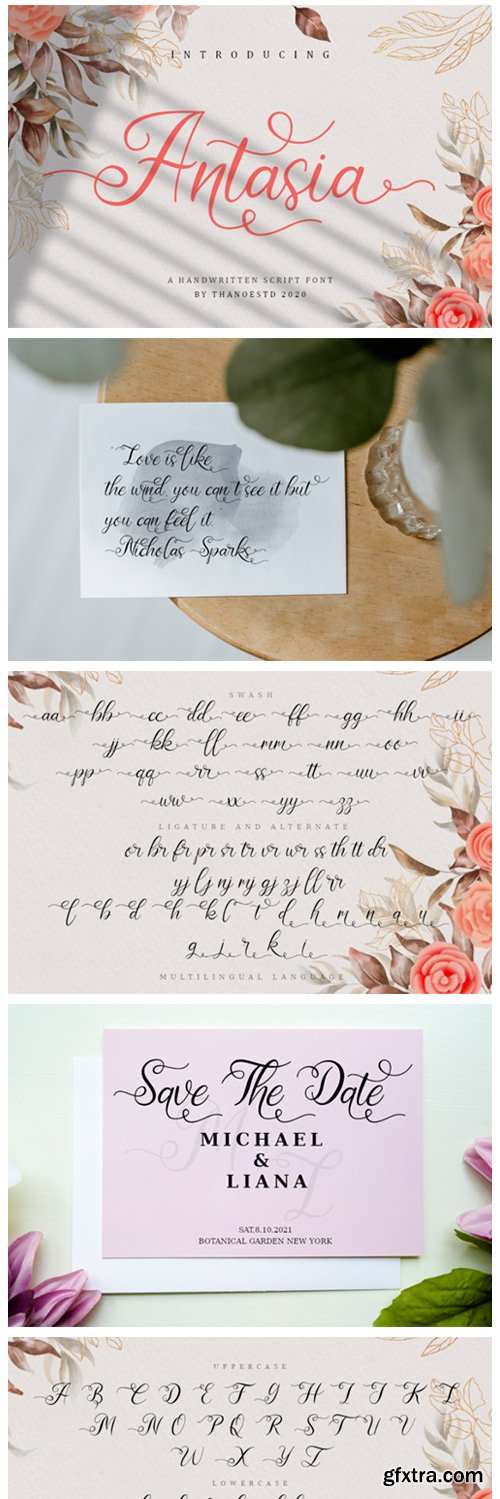 INTRODUCING
Antasia
A HANDWRITTEN SCRIPT FONT
BY THANOESTD 2020
"Love is like
the wind, you can't see it but
you can feel it."
Nicholas Sparks
SWASH
aa bb cc dd ee ff gg hh ii
jj kk ll mm nn oo
pp qq rr ss tt uu vv
ww xx yy zz
LIGATURE AND ALTERNATE
or br fr pr sr tr vr wr ss th tt dr
yj lj nj ry gj zj ll rr
l b d h k l t d h m n a u
g j r k i
MULTILINGUAL LANGUAGE
Save The Date
M
L
MICHAEL
&
LIANA
SAT,8.10.2021
BOTANICAL GARDEN NEW YORK
UPPERCASE
A B C D E F G H I J K L
M N O P Q R S T U V
W X Y Z
LOWERCASE
gfxtra.com